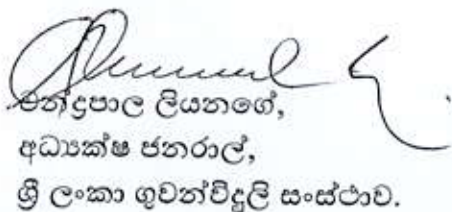 චන්ද්‍රපාල ලියනගේ,
අධ්‍යක්ෂ ජනරාල්,
ශ්‍රී ලංකා ගුවන්විදුලි සංස්ථාව.